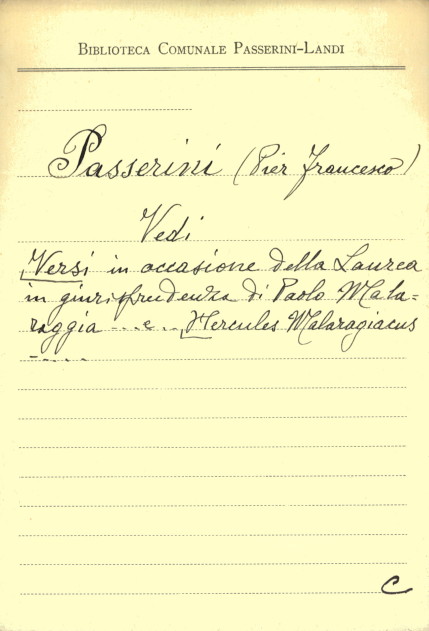 BIBLIOTECA COMUNALE PASSERINI-LANDI
Passerini (Pier Francesco)
Vedi
Versi in occasione della Laurea
in giurisprudenza di Paolo Mala=
raggia ... e ... Hercules Malaragiacus
.....
C